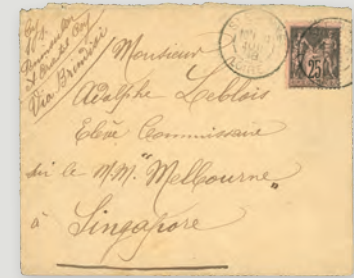 Via Brindisi
Monsieur
Adolphe Leblois
Elève Commissaire
sur le M.M. "Melbourne"
à Singapore
25